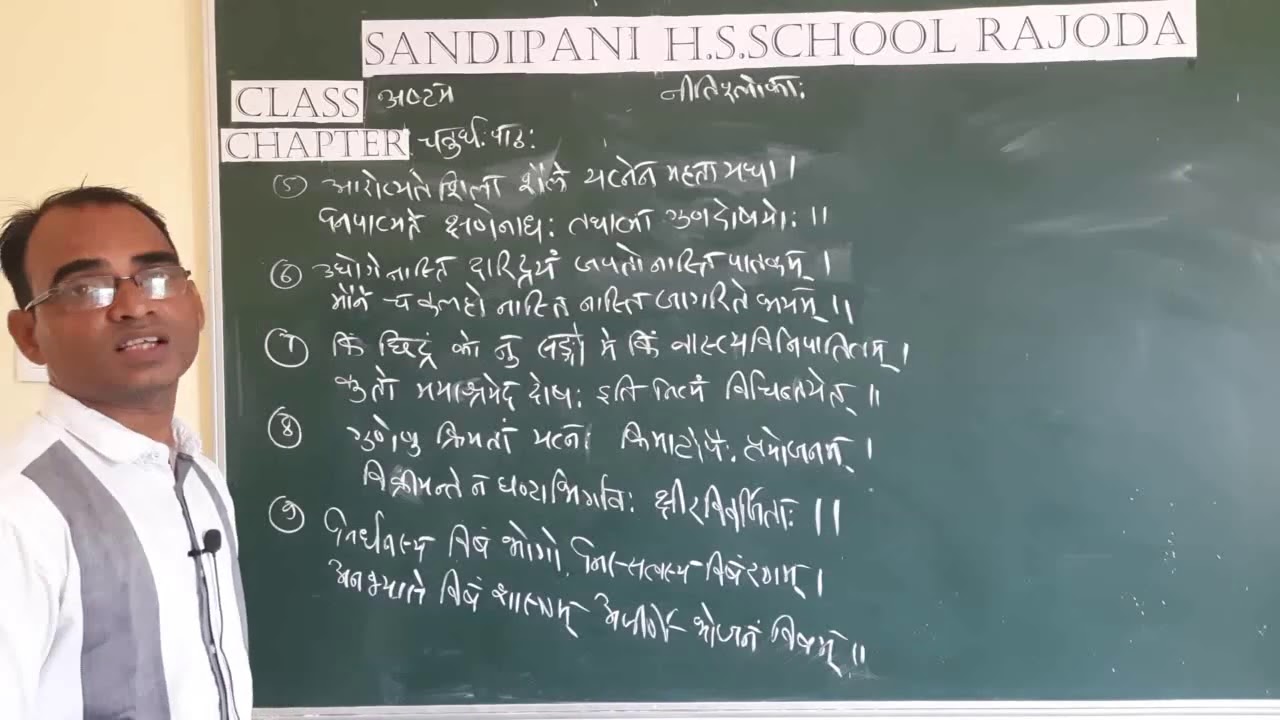 SANDIPANI H.S.SCHOOL RAJODA
CLASS अष्टम नीतिश्लोकाः
CHAPTER चतुर्थः पाठः
५ आरोप्यते शिला शैले यत्नेन महता यथा ।
निपात्यते क्षणेनाधः तथात्मा गुणदोषयोः ॥
६ उद्योगे नास्ति दारिद्र्यं जपतो नास्ति पातकम् ।
मौने च कलहो नास्ति नास्ति जागरिते भयम् ॥
7 किं छिद्रं को नु सङ्गो मे किं वास्त्यविनिपातितम् ।
कुतो ममाश्रयेद् दोषः इति नित्यं विचिन्तयेत् ॥
8 गुणेषु क्रियतां यत्नः किमाटोपैः प्रयोजनम् ।
विक्रीयन्ते न घण्टाभिर्गावः क्षीरविवर्जिताः ॥
9 निर्धनस्य विषं भोगो निस्सत्वस्य विषं रणम् ।
अनभ्यासे विषं शास्त्रम् अजीर्णे भोजनं विषम् ॥